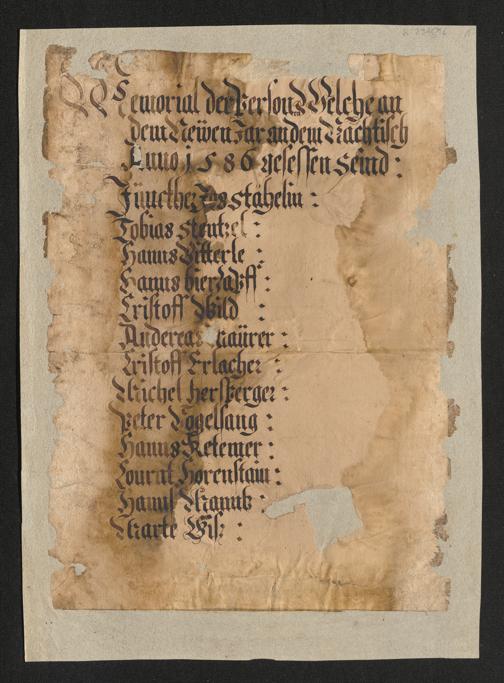 Memorial der Person Welche an
dem Newen Jar an dem Nachtisch
Anno 1586 gesessen Seind :
Junckher Stähelin :
Tobias Stentzel :
Hanns Bitterle :
Hanns :
Cristoff Wild :
Andereas Maürer :
Cristoff Erlacher :
Michel Hersperger :
Peter Vogelsang :
Hanns Ketemer :
Conrat Horenstain :
Hanns Manutz :
Marte Wisz :